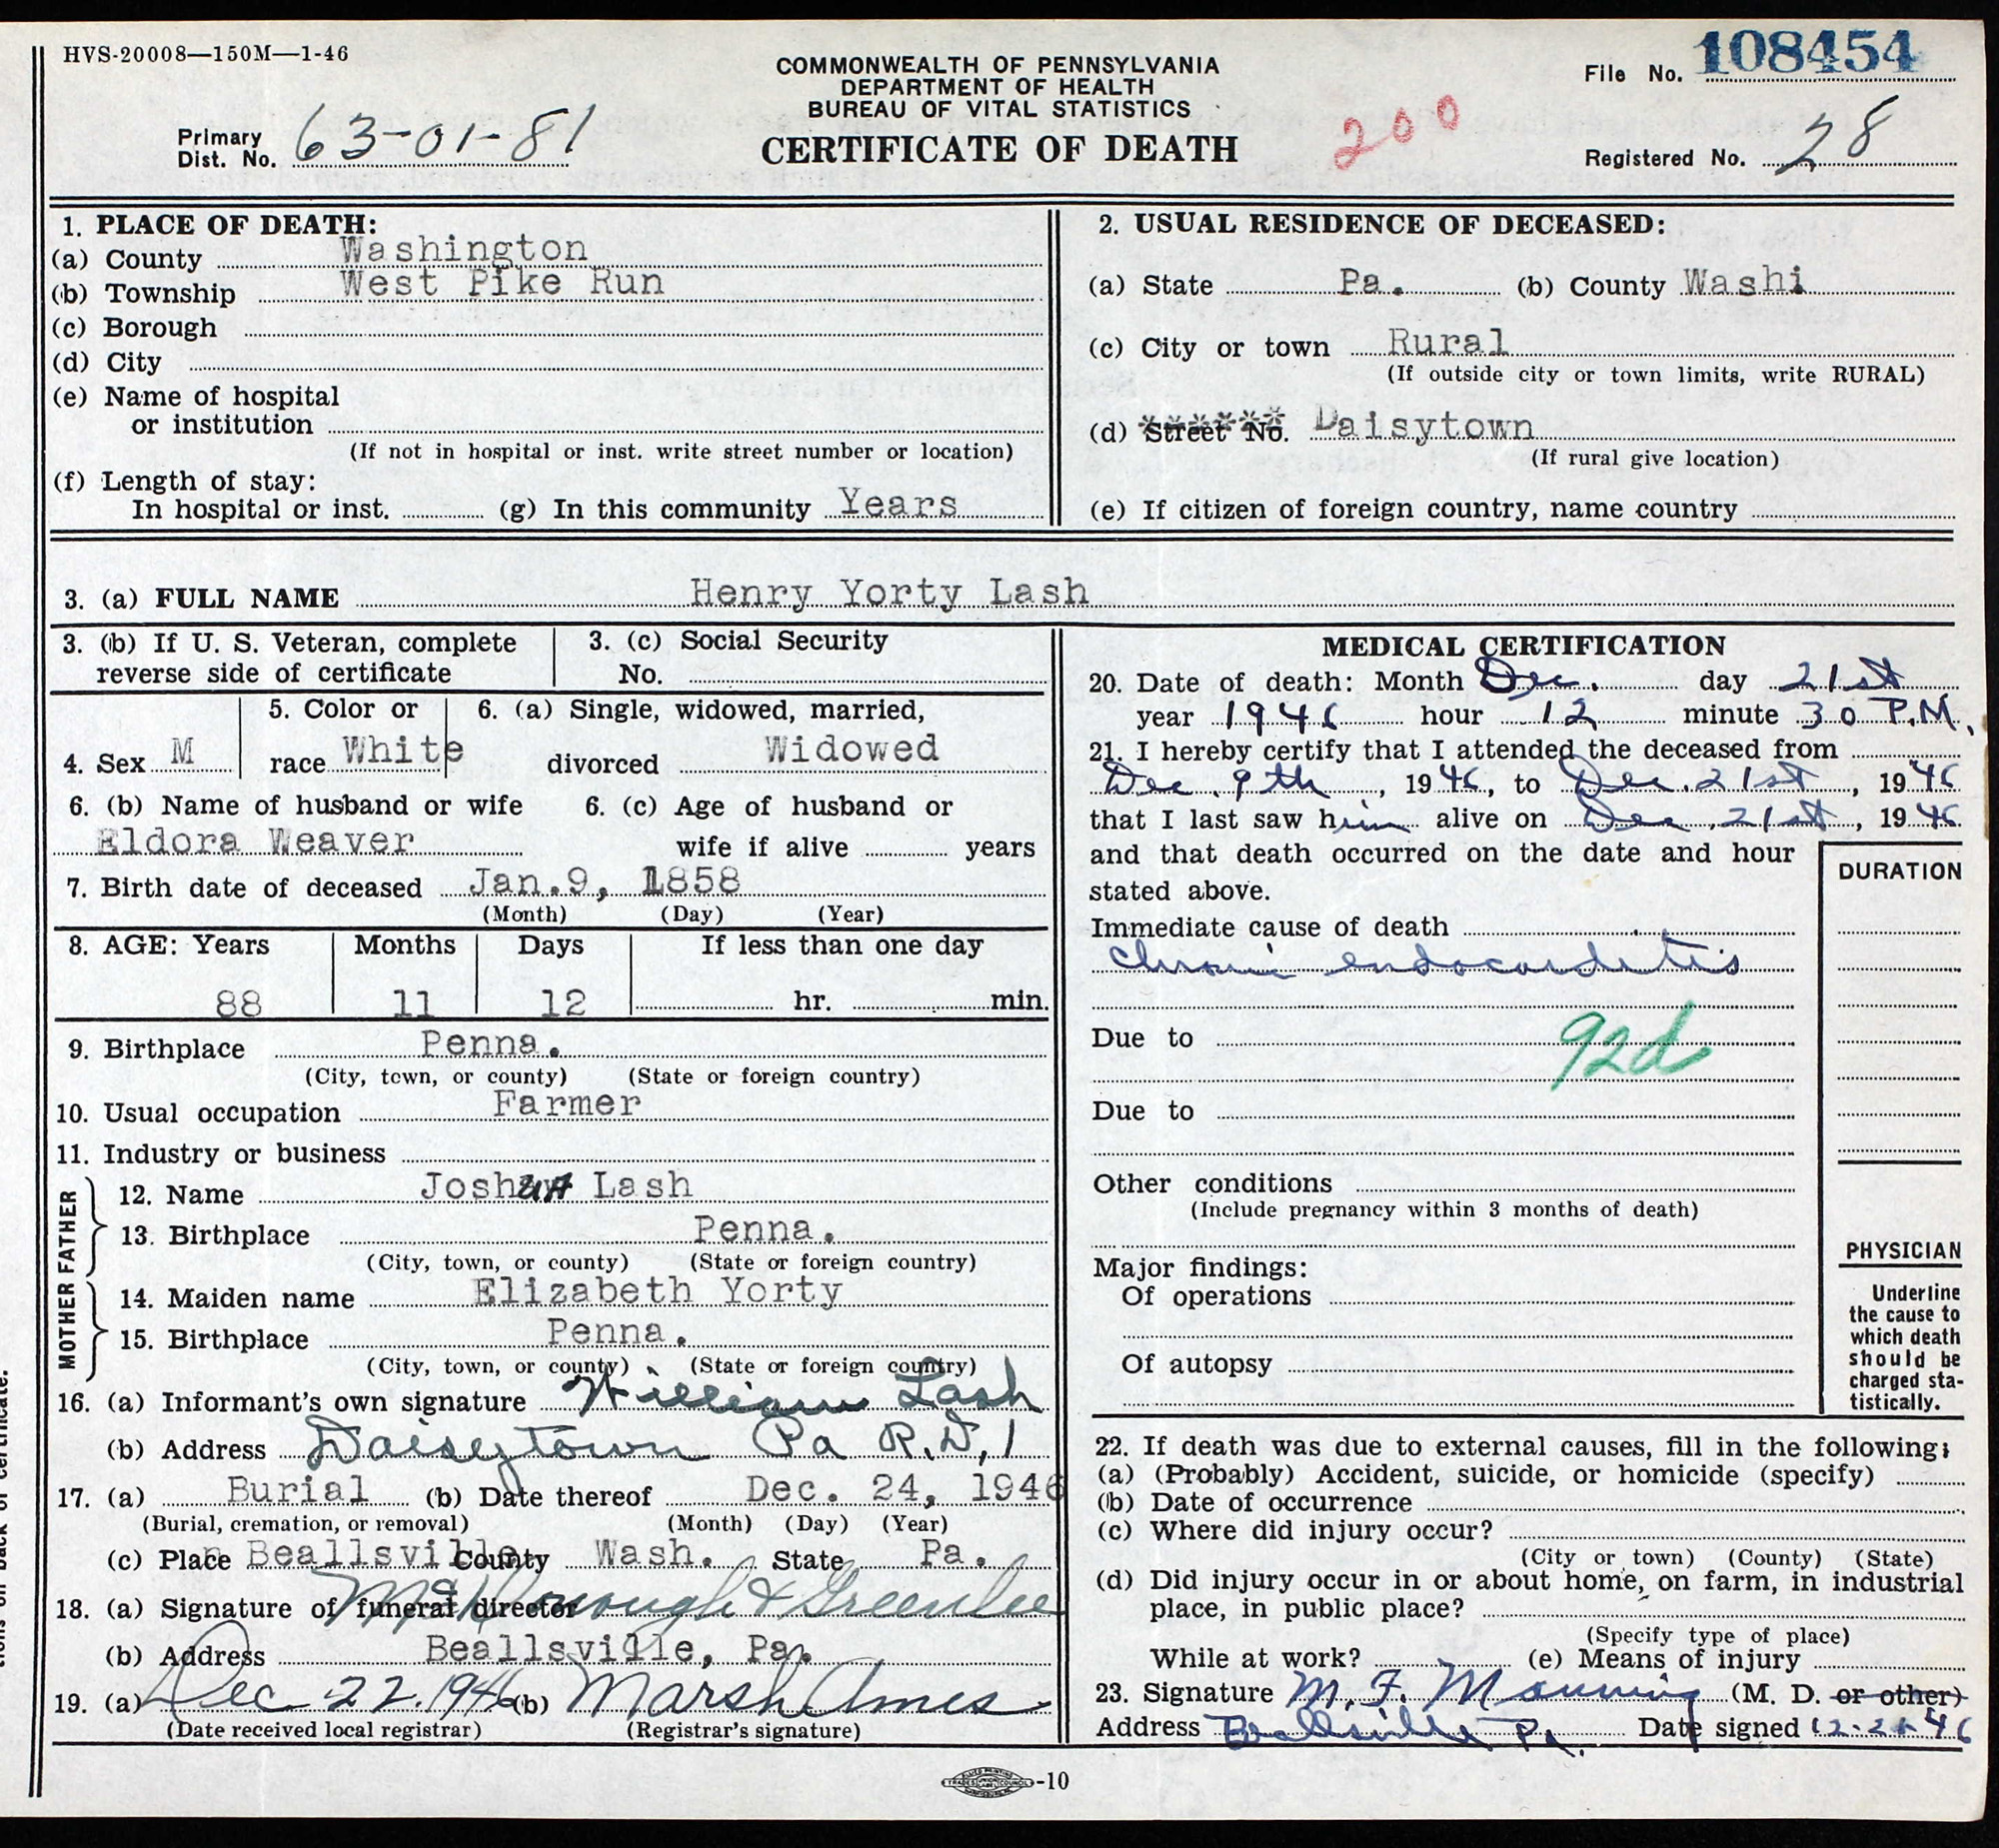 HVS-20008—150M—1-46
COMMONWEALTH OF PENNSYLVANIA
DEPARTMENT OF HEALTH
BUREAU OF VITAL STATISTICS
CERTIFICATE OF DEATH
200
File No. 108454
Primary
Dist. No. 63-01-81
Registered No. 28
1. PLACE OF DEATH:
(a) County Washington
(b) Township West Pike Run
(c) Borough
(d) City
(e) Name of hospital
or institution
(If not in hospital or inst. write street number or location)
(f) Length of stay:
In hospital or inst. (g) In this community Years
2. USUAL RESIDENCE OF DECEASED:
(a) State Pa. (b) County Washi
(c) City or town Rural
(If outside city or town limits, write RURAL)
(d) Street No. Daisytown
(If rural give location)
(e) If citizen of foreign country, name country
3. (a) FULL NAME Henry Yorty Lash
3. (b) If U. S. Veteran, complete
reverse side of certificate
3. (c) Social Security
No.
4. Sex M
5. Color or
race White
6. (a) Single, widowed, married,
divorced Widowed
6. (b) Name of husband or wife
Eldora Weaver
6. (c) Age of husband or
wife if alive years
7. Birth date of deceased Jan.9, 1858
(Month) (Day) (Year)
8. AGE: Years Months Days If less than one day
88 11 12 hr. min.
9. Birthplace Penna.
(City, town, or county) (State or foreign country)
10. Usual occupation Farmer
11. Industry or business
FATHER
12. Name Joshua Lash
13. Birthplace Penna.
(City, town, or county) (State or foreign country)
MOTHER
14. Maiden name Elizabeth Yorty
15. Birthplace Penna.
(City, town, or county) (State or foreign country)
16. (a) Informant's own signature William Lash
(b) Address Daisytown Pa R.D,1
17. (a) Burial (b) Date thereof Dec. 24, 1946
(Burial, cremation, or removal) (Month) (Day) (Year)
(c) Place Beallsville County Wash. State Pa.
18. (a) Signature of funeral director McDonough & Greenlee
(b) Address Beallsville, Pa.
19. (a) Dec 22. 1946 (b) Marsh Ames
(Date received local registrar) (Registrar's signature)
MEDICAL CERTIFICATION
20. Date of death: Month Dec. day 21st
year 1946 hour 12 minute 30 P.M.
21. I hereby certify that I attended the deceased from
Dec. 9th, 1946, to Dec. 21st, 1946
that I last saw him alive on Dec. 21st, 1946
and that death occurred on the date and hour
stated above.
DURATION
Immediate cause of death
Chronic endocarditis
Due to 92d
Due to
Other conditions
(Include pregnancy within 3 months of death)
Major findings:
Of operations
Of autopsy
PHYSICIAN
Underline
the cause to
which death
should be
charged sta-
tistically.
22. If death was due to external causes, fill in the following:
(a) (Probably) Accident, suicide, or homicide (specify)
(b) Date of occurrence
(c) Where did injury occur?
(City or town) (County) (State)
(d) Did injury occur in or about home, on farm, in industrial
place, in public place?
(Specify type of place)
While at work? (e) Means of injury
23. Signature M. F. Manning (M. D. or other)
Address Beallsville Pa. Date signed 12-21-46
-10